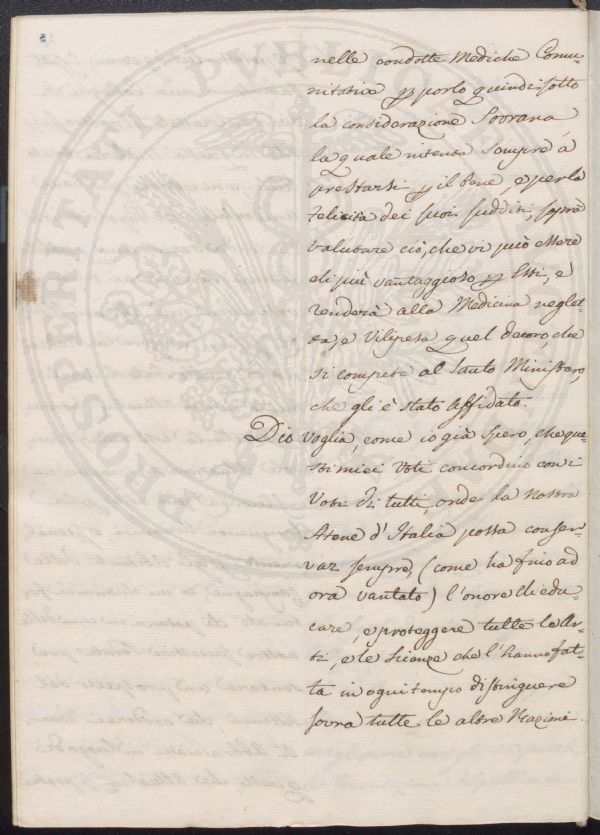 5
nelle condotte Mediche Comu-
nitative per porlo quindi sotto
la considerazione Sovrana,
la quale intenta sempre à
prestarsi per il bene, e per la
felicità dei suoi sudditi, saprà
valutare ciò, che vi può essere
di più vantaggioso per Essi, e
renderà alla Medicina neglet-
ta, e Vilipesa quel decoro, che
si compete al Santo Ministero,
che gli è stato affidato.
Dio voglia, come io già spero, che que-
sti miei Voti concordino con i
Voti di tutti, onde la nostra
Atene d'Italia possa conser-
var sempre, (come ha fino ad
ora vantato) l'onore di edu-
care, e proteggere tutte le Ar-
ti, e le Scienze che l'hanno fat-
ta in ogni tempo distinguere
sovra tutte le altre Nazioni.
PROSPERITATI PUBLICAE